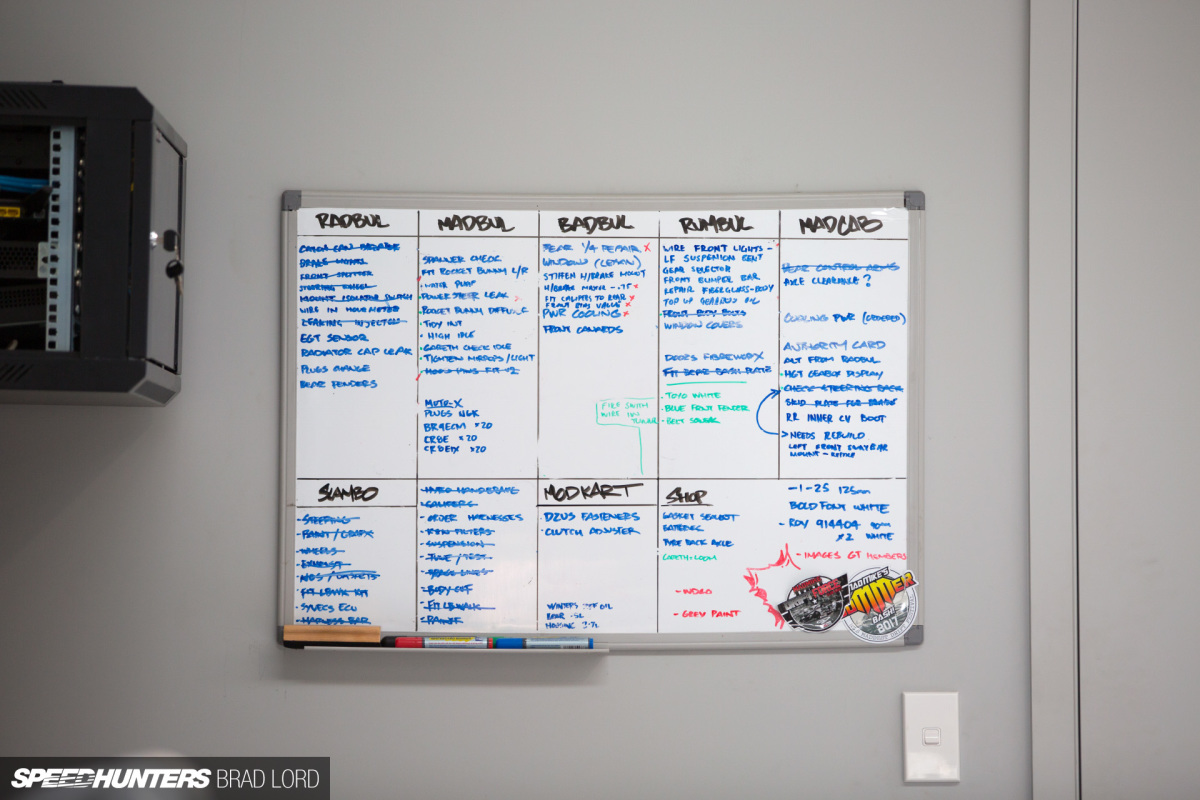 RADBUL
BRAKE
FRONT SPLITTER
STEERING WHEEL
MOUNT ISOLATOR SWITCH
WIRE IN HOUR METER
LEAKING INJECTORS
EGT SENSOR
RADIATOR CAP LEAK
PLUGS CHANGE
REAR FENDERS
MADBUL
SPANNER CHECK
FIT ROCKET BUNNY L/R
WATER PUMP
POWER STEER LEAK
ROCKET BUNNY
TIDY INT
HIGH IDLE
GARETH CHECK IDLE
TIGHTEN MIRRORS/LIGHT
MOTO-X
PLUGS NGK
BR4ECM ×20
CR8E ×20
CR8EIX ×20
BADBUL
REAR 1/4 REPAIR X
WINDOW (LEXAN)
STIFFEN H/BRAKE MOUNT
H/BRAKE MASTER - .75 X
FIT CALIPERS TO REAR X
FRONT BIAS VALVE X
PWR COOLING X
FRONT CANNARDS
FIRE SWITCH
WIRE
RUMBUL
WIRE FRONT LIGHTS -
LF SUSPENSION BENT
GEAR SELECTOR
FRONT BUMPER BAR
REPAIR FIBERGLASS-BODY
TOP UP GEARBOX OIL
FRONT BODY BOLTS
WINDOW COVERS
DOORS FIBREWORX
FIT REAR BASH PLATE
- TOYO WHITE
- BLUE FRONT FENDER
- BELT SQUEAL
MADCAB
REAR CONTROL ARMS
AXLE CLEARANCE?
COOLING PWR (ORDERED)
AUTHORITY CARD
ALT FROM RADBUL
HGT GEARBOX DISPLAY
CHECK STEERING RACK
SKID PLATE FOR
RR INNER CV BOOT
> NEEDS REBUILD
LEFT FRONT SWAYBAR
MOUNT -
SLAMBO
- STEERING
- PAINT / GRAPX
- WHEELS
- EXHAUST
- FIT LBWK KIT
- SYVECS ECU
- HARNESS BAR
- HYDRO HANDBRAKE
- CALIPERS
- ORDER HARNESSES
- K&N FILTERS
- SUSPENSION
- TUNE / TEST
- BRAKE LINES
- BODY OFF
- FIT LBWALK
MODKART
- DZUS FASTENERS
- CLUTCH ADJUSTER
WINTERS DIFF OIL
SHOP
GASKET SEALANT
TYRE RACK AXLE
- GREY PAINT
- 1-25 125mm
BOLD FONT WHITE
- RDY 914404 90mm
×2 WHITE
- IMAGES GT MEMBERS
MADMIKE'S
SUMMER
BASH
2017
SPEEDHUNTERS BRAD LORD